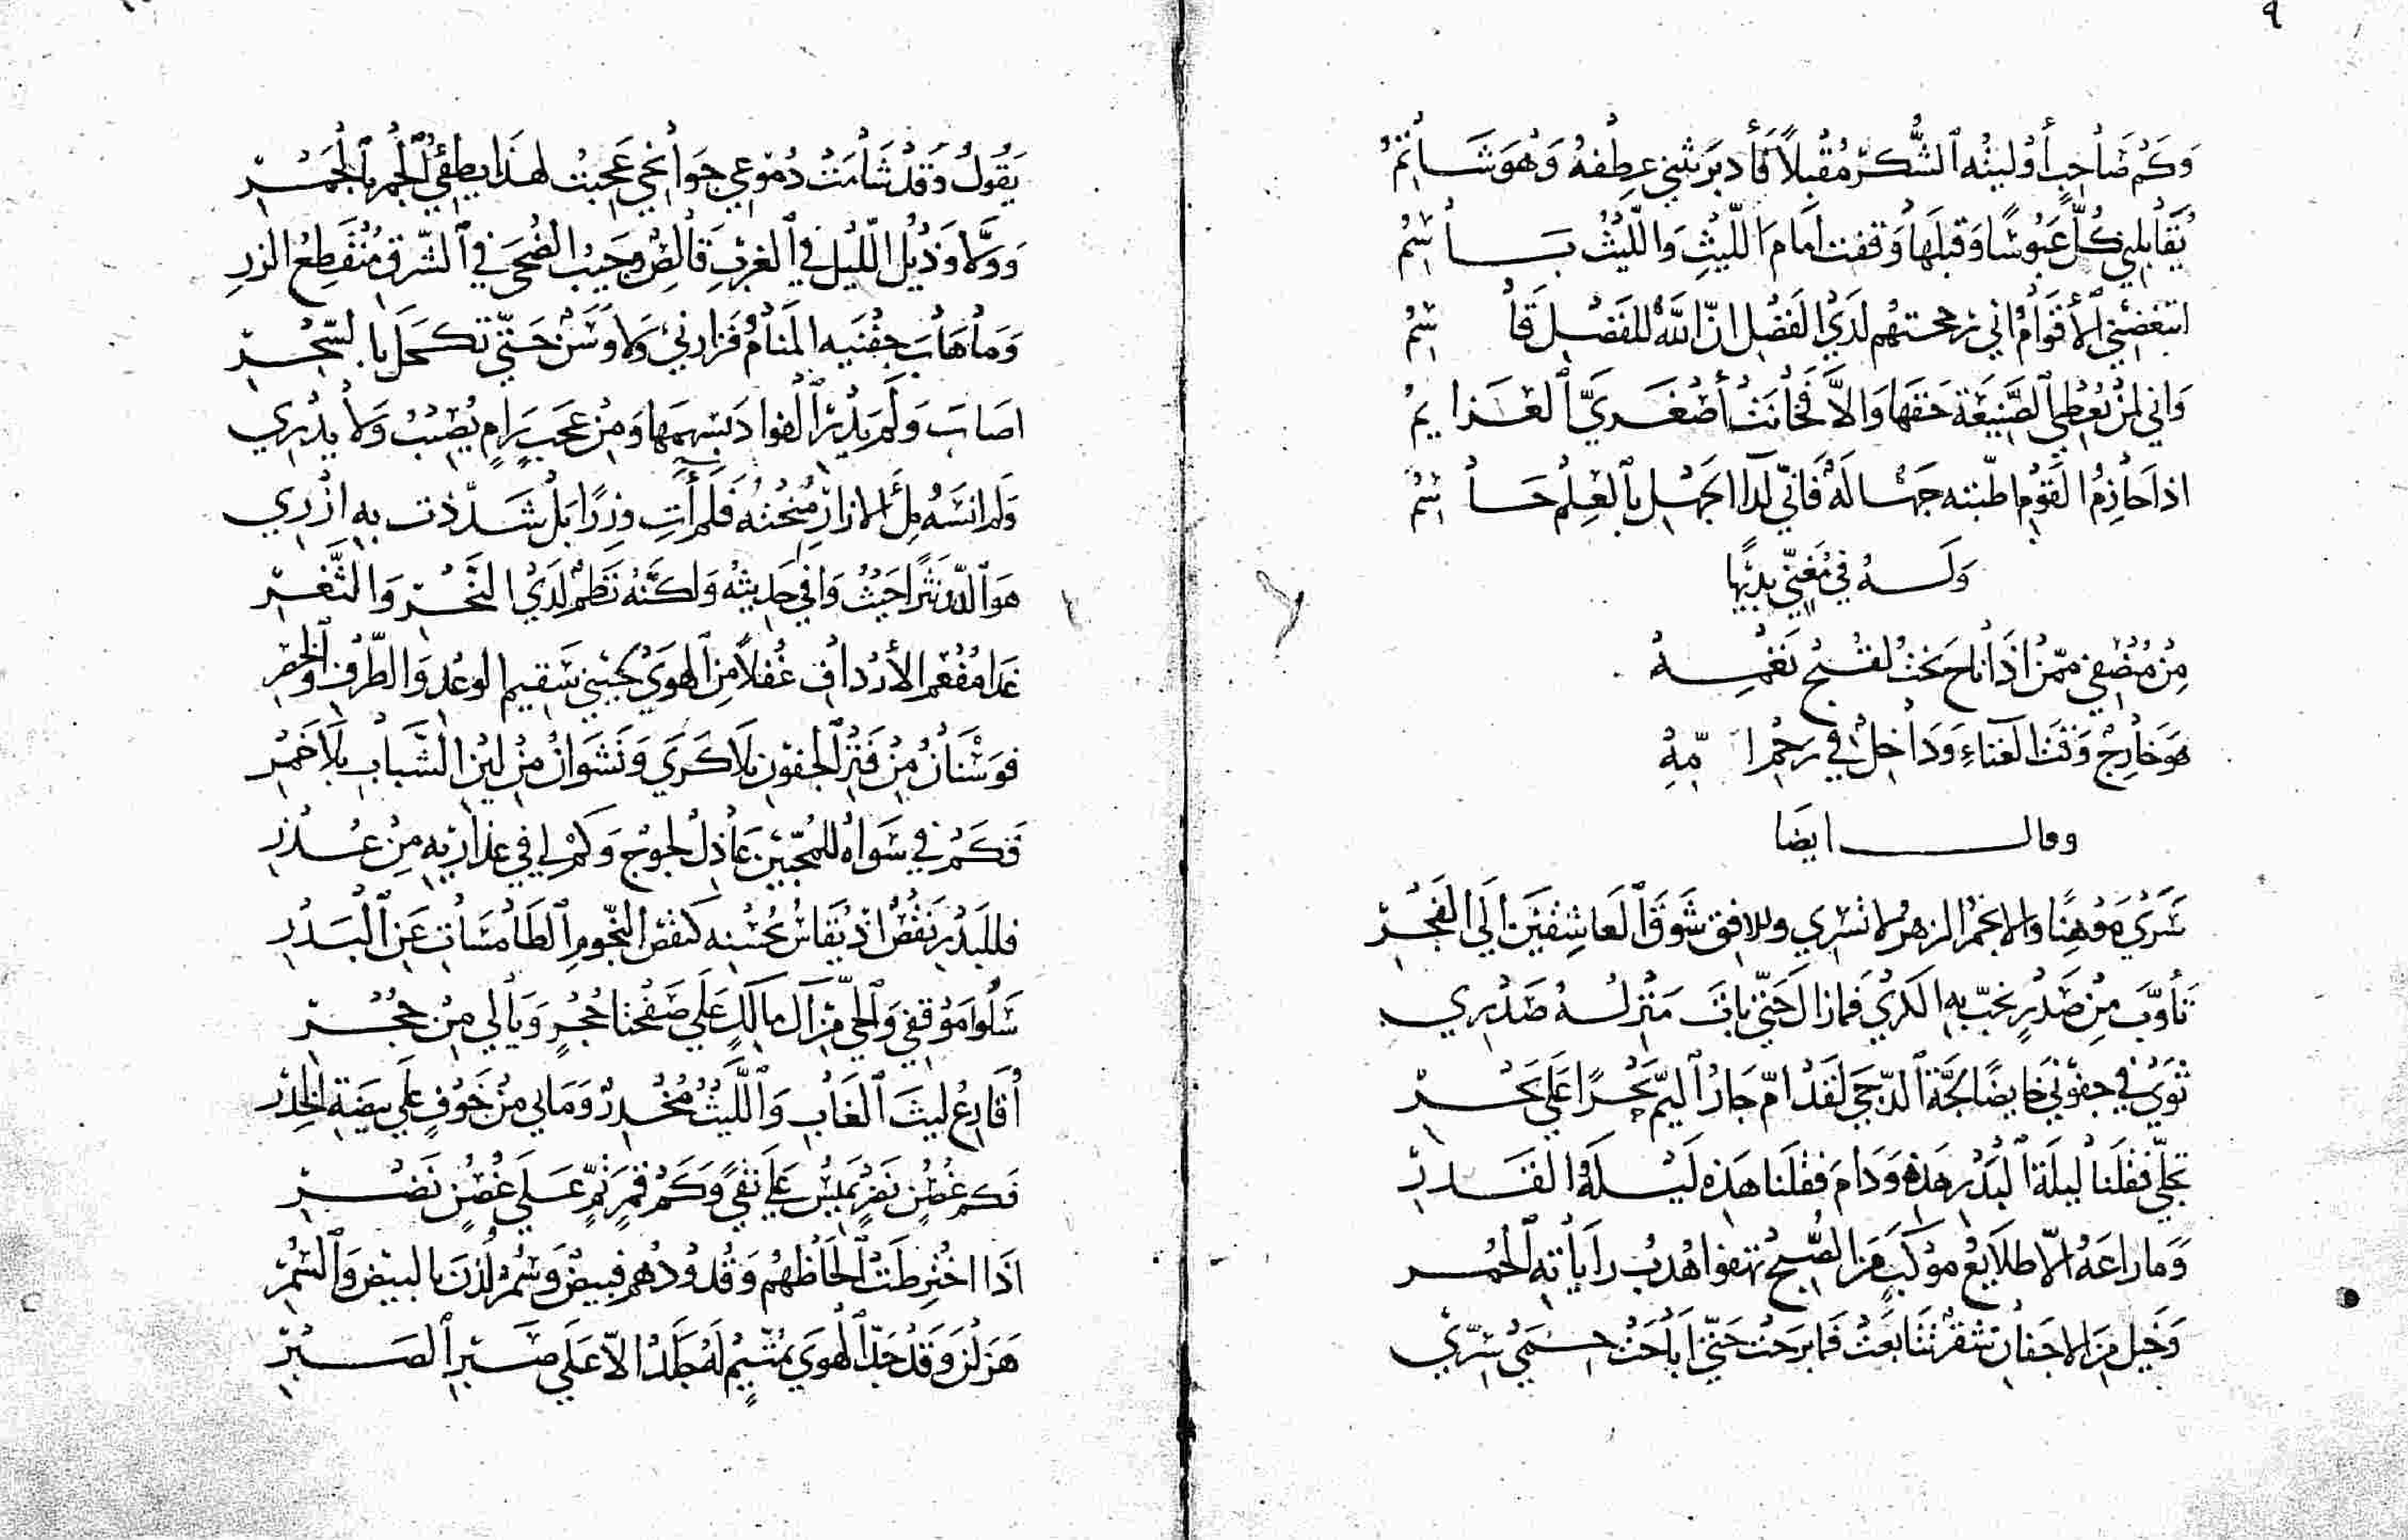 ٩
وَكَم صَاحِبٍ أُوليتُه الشُّكرَ مُقبِلاً فَأدبَرَ يثني عِطفهُ وَهوَ شَاتمُ
يُقَابِلني كُلٌّ عَبُوسًا وَقبلَها وَقفت امَامَ اللّيثِ وَاللّيثُ بَاسِمُ
اتبغضني الأقوَامُ اني زحمتهم لَدَى الفَضل انّ اللّهَ للفَضل قَاسِمُ
وَاني لمن يُعطي الصَّنيعَة حَقها وَالاَّ فَخَانَت أصغَريَّ العَزايمُ
اذا حَازمُ القَومِ اطّبته جهَالَهُ فَانّي لدَا الجَهل بالعِلم حَاسِمُ
وَلَهُ في مُغنّي بديها
مِن مُنصفي ممّن اذَا ناح بَحت لقبح نَغمهِ
هوَ خَارِجٌ وَقتَ الغناءِ وَدَاخِلٌ في رَحِم امّهِ
وقال ايضَا
سَرَى مَوهنًا والانجمُ الزهرُ لا تسري وللافق شَوق العَاشِقَينَ الَى الفَجر
تأوّبَ مِن صَدرٍ بخبّ به الكَرى فمَا زالَ حَتّى بَاتَ مَنزلهُ صَدري
ثَوى في جفوني خَايضًا لجَّة الدّجى لقَد امّ جَارُ اليمّ بَحرًا عَلى بَحر
تجلّى فَقلنا ليلَة البَدر هَذه وَدَامَ فقلنا هَذه لَيلَة القَدر
وَما راعَهُ الاّ طلايعُ مَوكَبٍ مَن الصُّبح تهفوا هُدبُ رايَاته الحُمر
وَخيل مِن الاجفان شقرٌ تتَابَعت فَما بَرحَت حَتّى ابَاحَت حِمى سرّي
يَقُولُ وَقَد شَامَت دُموعي جَوانحي عَجبت لهذَا يطفئُ الجَمر بالجَمر
وَوَلَّا وَذيل اللّيل في الغَربِ قَالصٌ وَجَيب الضُحى في الشَّرق مُنقَطعُ الزر
وَمَا هَابَ جفنَيه المنَامُ فَزارني وَلا وَسَنٌ حَتّى تكَحلَ بالسّحر
اصَابَ وَلَم يَدر الفوادَ بسَهمها وَمِن عَجَبٍ رَامٍ يُصيبُ وَلا يدري
وَلم انسَهُ مِلأ الازارِ مُنحتُهُ فَلَم أتِ وزرًا بَل شَدّدت به ازري
هوَ الدّر نَثرًا حَيثُ وَافى حَديثهُ وَلكنَّهُ نَظمٌ لَدى النَّحر وَالثَّغر
غدَا مُفعم الأردافِ غُفلاً مِن الهوَى يجنبني سَقيم الوعد وَالطّرفِ والخصر
فوَسنَانُ مِن فَترِ الجفونِ بلاَ كَرى وَنَشوَانُ مِن لينِ الشّبابِ بلاَ خَمر
فَكَم في سَوَاهُ للمُحبّين عَاذلٌ لجوجٌ وَكَم لي في عذاريه مِن عُذر
فللبَدر نَقصٌ اذ يُقَاسُ بحُسنه كَنقص النّجومِ الطَامسَات عَنِ البَدر
سَلُوا مَوقفي وَالحيّ مِن آل مَالكٍ عَلى صَفحنا حُجرٍ وَيَا لي مِن حُجر
أقَارعُ ليثَ الغَابِ وَاللَّيثُ مُخدرٌ وَمَابي مِن خَوفٍ عَلى بيضَة الخِدر
فَكم غُصنٍ نَضرٍ يميسُ عَلى نقًى وَكَم قمَرٍ تمٍّ عَلى غُصنٍ نَضر
اذَا اختُرطَت الحَاظهُم وَقُدودُهم فبيضٌ وَسُمرٌ لُذنَ بالبيض وَالسُّمر
هَزلن وَقَد جَدّ الهوَى بمُتَيّمٍ لَهُ جَلَدٌ الاّ عَلى صَبَرِ الصَبر